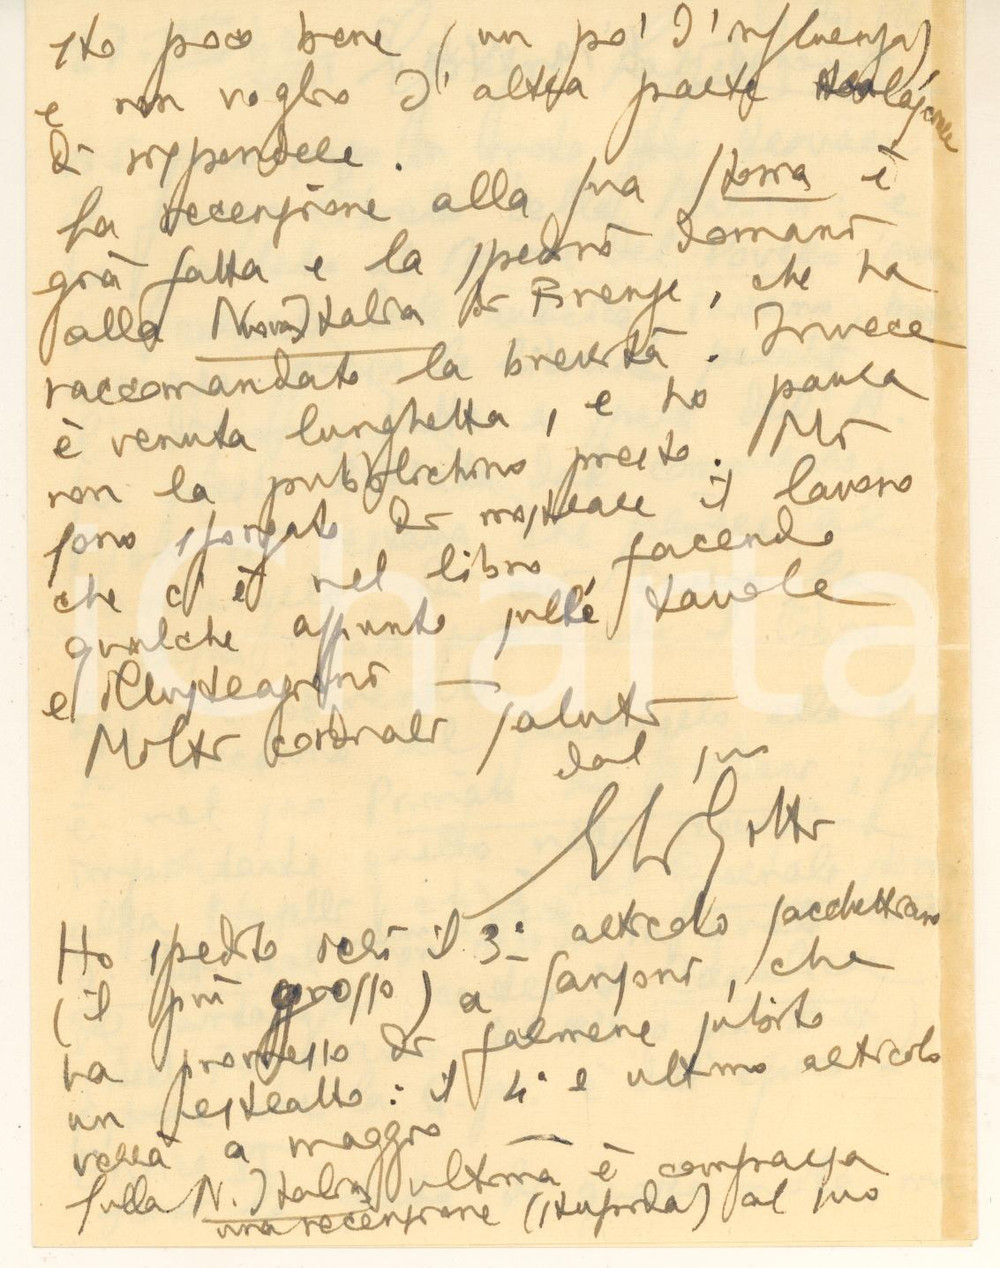 sto poco bene (un po' d'influenza)
e non voglio d'altra parte tralasciare
di rispondere.
La recensione alla sua Storia è
già fatta e la spedirò domani
alla Nuova Italia di Firenze, che ha
raccomandato la brevità. Invece
è venuta lunghetta, e ho paura
non la pubblichino presto. Mi
sono sforzato di mostrare il lavoro
che c'è nel libro facendo
qualche appunto sulle tavole
e illustrazioni —
Molti cordiali saluti —
dal suo
Ho spedito ieri il 3° articolo sacchettiano
(il più grosso) a Sansoni, che
ha promesso di farmene subito
un estratto: il 4° e ultimo articolo
verrà a maggio —
Sulla N. Italia ultima è comparsa
una recensione (stupida) al suo
iCharta